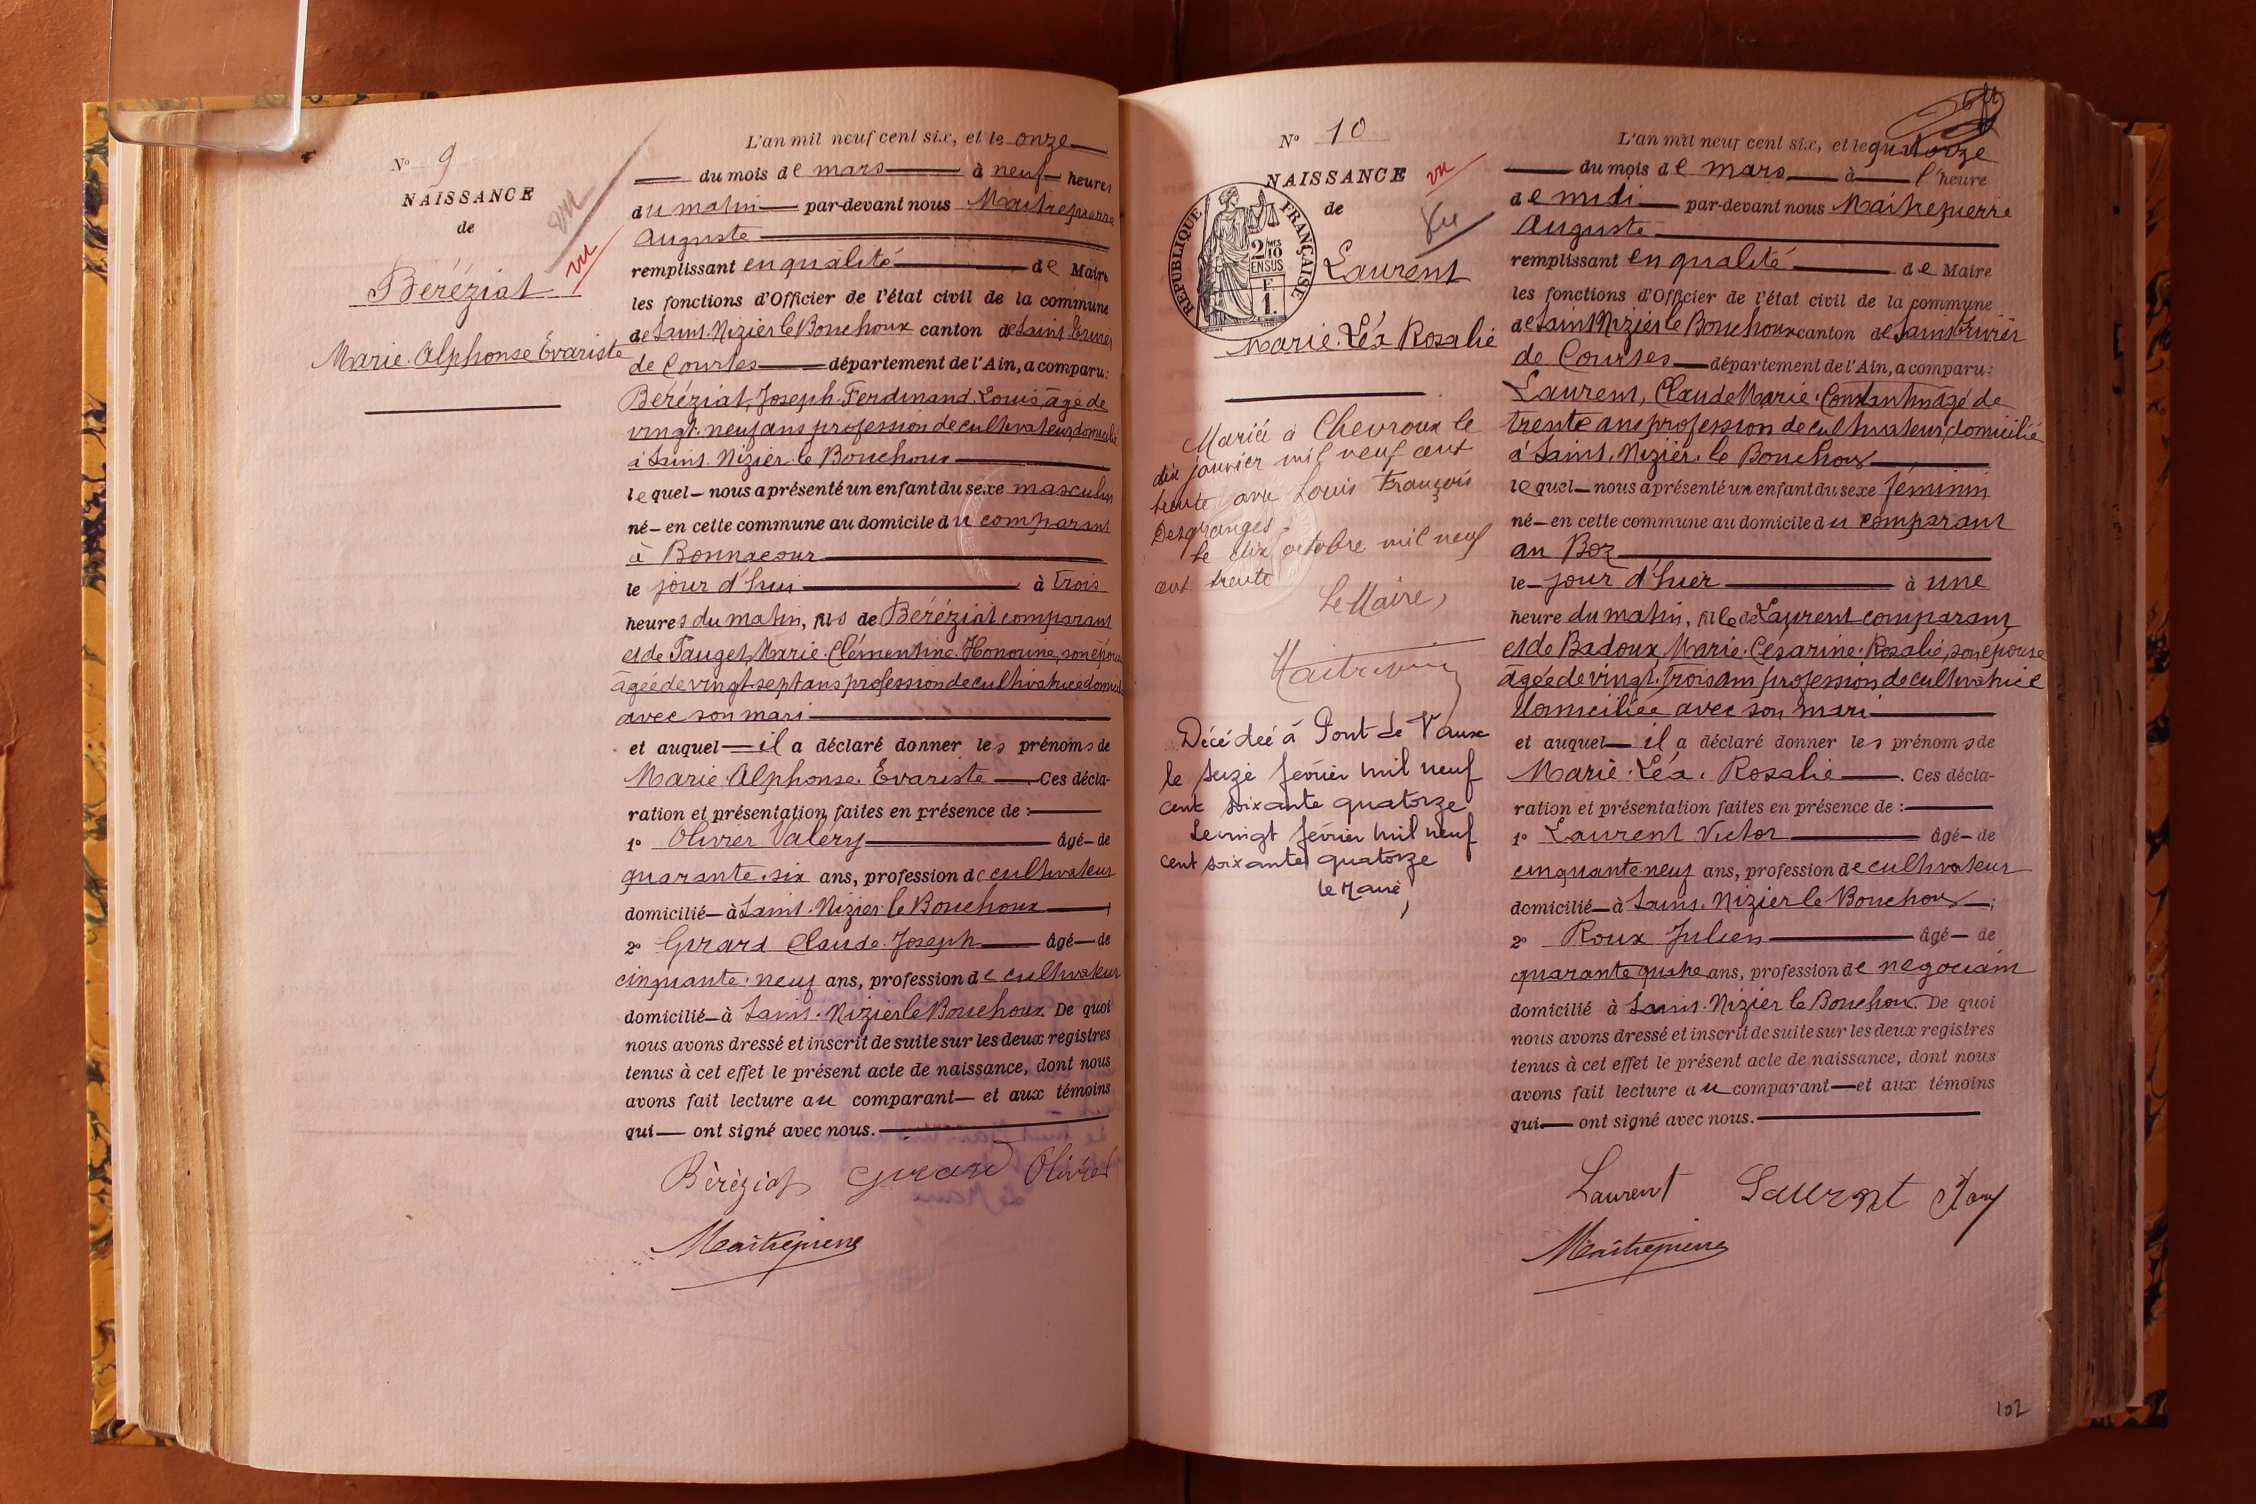 N° 9
NAISSANCE
de
Béréziat
Marie Alphonse Évariste
vu
vu
L'an mil neuf cent six, et le onze
du mois de mars à neuf heures
du matin par-devant nous Maitrepierre
Auguste
remplissant en qualité de Maire
les fonctions d'Officier de l'état civil de la commune
de Saint. Nizier le Bouchoux canton de Saint Trivier
de Courtes département de l'Ain, a comparu:
Béréziat, Joseph. Ferdinand. Louis, âgé de
vingt. neuf ans profession de cultivateur, domicilié
à Saint. Nizier. le Bouchoux
lequel nous a présenté un enfant du sexe masculin
né en cette commune au domicile du comparant
à Bonnacour
le jour d'hui à trois
heures du matin, fils de Béréziat comparant
et de Pauget, Marie. Clémentine. Honorine, son épouse
âgée de vingt-sept ans profession de cultivatrice domicil
avec son mari
et auquel il a déclaré donner les prénoms de
Marie. Alphonse. Évariste. Ces décla-
ration et présentation faites en présence de :
1° Olivier Valéry âgé de
quarante. six ans, profession de cultivateur
domicilié à Saint. Nizier le Bouchoux ;
2° Girard Claude. Joseph âgé de
cinquante. neuf ans, profession de cultivateur
domicilié à Saint. Nizier le Bouchoux. De quoi
nous avons dressé et inscrit de suite sur les deux registres
tenus à cet effet le présent acte de naissance, dont nous
avons fait lecture au comparant et aux témoins
qui ont signé avec nous.
Béréziat Girard Olivier
Maitrepierre
N° 10
NAISSANCE
de
vu
Vu
RÉPUBLIQUE FRANÇAISE
2 10 MES
EN SUS
F
1.
Laurent
Marie. Léa Rosalie
Mariée à Chevroux le
dix janvier mil neuf cent
trente avec Louis François
Desgranges.
Le dix octobre mil neuf
cent trente
Le Maire,
Décédée à Pont de Vaux
le seize février mil neuf
cent soixante quatorze
Le vingt février mil neuf
cent soixante quatorze
Le Maire,
L'an mil neuf cent six, et le quatorze
du mois de mars à l'heure
de midi par-devant nous Maitrepierre
Auguste
remplissant en qualité de Maire
les fonctions d'Officier de l'état civil de la commune
de Saint Nizier le Bouchoux canton de Saint Trivier
de Courtes département de l'Ain, a comparu:
Laurent, Claude Marie. Constantin âgé de
trente ans profession de cultivateur, domicilié
à Saint. Nizier. le Bouchoux
lequel nous a présenté un enfant du sexe féminin
né en cette commune au domicile du comparant
au Boz
le jour d'hier à une
heure du matin, fille de Laurent comparant
et de Badoux, Marie. Césarine. Rosalie, son épouse
âgée de vingt. trois ans profession de cultivatrice
domiciliée avec son mari
et auquel il a déclaré donner les prénoms de
Marie. Léa. Rosalie. Ces décla-
ration et présentation faites en présence de :
1° Laurent Victor âgé de
cinquante-neuf ans, profession de cultivateur
domicilié à Saint. Nizier le Bouchoux ;
2° Roux Julien âgé de
quarante quatre ans, profession de négociant
domicilié à Saint. Nizier le Bouchoux. De quoi
nous avons dressé et inscrit de suite sur les deux registres
tenus à cet effet le présent acte de naissance, dont nous
avons fait lecture au comparant et aux témoins
qui ont signé avec nous.
Laurent Laurent Roux
Maitrepierre
102